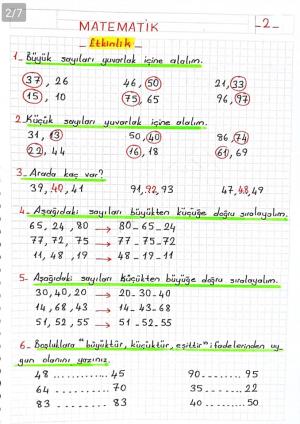 2/7
MATEMATİK
-2-
- Etkinlik -
1- Büyük sayıları yuvarlak içine alalım.
37, 26    46, 50    21, 33
15, 10    75, 65    96, 97
2- Küçük sayıları yuvarlak içine alalım.
31, 13    50, 40    86, 74
22, 44    16, 18    61, 69
3- Arada kaç var?
39, 40, 41    91, 92, 93    47, 48, 49
4- Aşağıdaki sayıları büyükten küçüğe doğru sıralayalım.
65, 24, 80 → 80-65-24
77, 72, 75 → 77-75-72
11, 48, 19 → 48-19-11
5- Aşağıdaki sayıları küçükten büyüğe doğru sıralayalım.
30, 40, 20 → 20-30-40
14, 68, 43 → 14-43-68
51, 52, 55 → 51-52-55
6- Boşluklara "büyüktür, küçüktür, eşittir" ifadelerinden uy-
gun olanını yazınız.
48 ............ 45    90 ........ 95
64 ............ 70    35 ........ 22
83 ............ 83    40 ........ 50